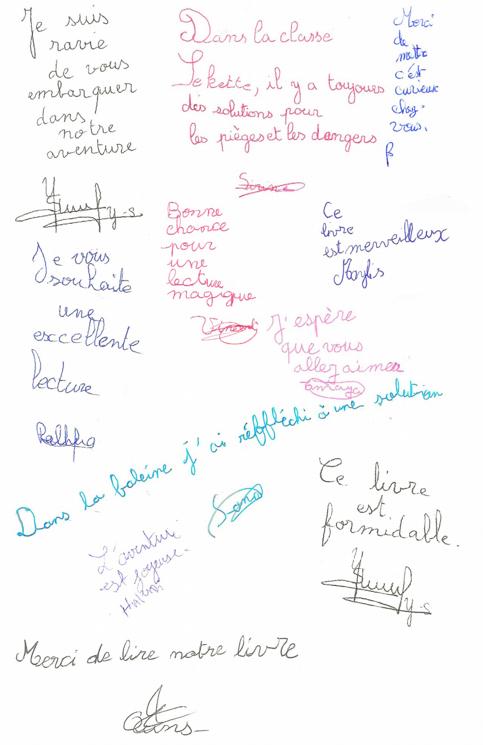 Je suis
ravie
de vous
embarquer
dans
notre
aventure
Dans la classe
Jekette, il y a toujours
des solutions pour
les pièges et les dangers
Sirine
Merci
de
mettre
c'est
curieux
chez
vous.
y-s
Bonne
chance
pour
une
lecture
magique
Vincent
Ce
livre
est merveilleux
Maylis
Je vous
souhaite
une
exccellente
lecture
J'espère
que vous
allez aimer
amaya
Dans la baleine j'ai réffléchi à une solution
Sana
Ce livre
est
formidable.
y-s
L'aventure
est joyeuse.
Merci de lire notre livre